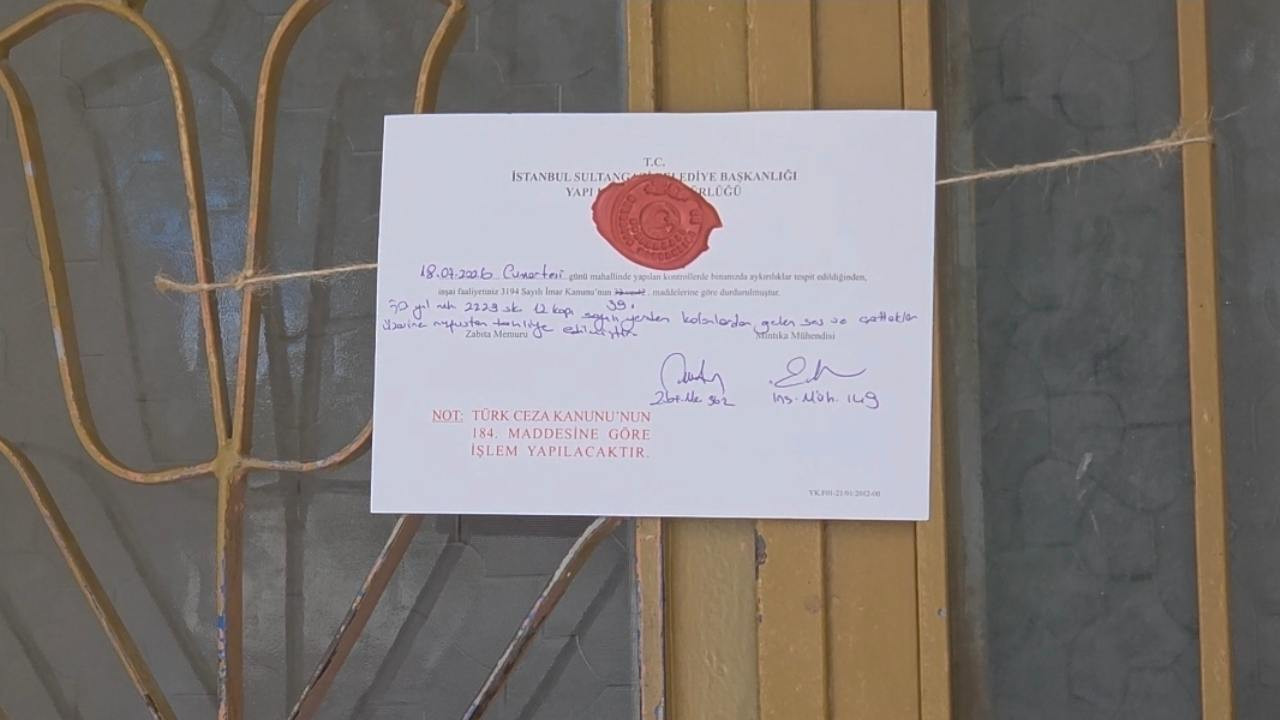 T.C.
İSTANBUL SULTANGAZİ BELEDİYE BAŞKANLIĞI
YAPI
18.07.2026 Cumartesi günü mahallinde yapılan kontrollerde binanızda aykırılıklar tespit edildiğinden,
inşai faaliyetiniz 3194 Sayılı İmar Kanunu'nun 39. maddelerine göre durdurulmuştur.
50 yıl mh 2229 sk 12 kapı sayılı yerden kolonlardan gelen ses ve çatlaklar
üzerine nüfustan tahliye edilmiştir.
Zabıta Memuru Mıntıka Mühendisi
Zbt. Me 562 İnş. Müh.
NOT: TÜRK CEZA KANUNU'NUN
184. MADDESİNE GÖRE
İŞLEM YAPILACAKTIR.
YK.F01-23/01/2012-00